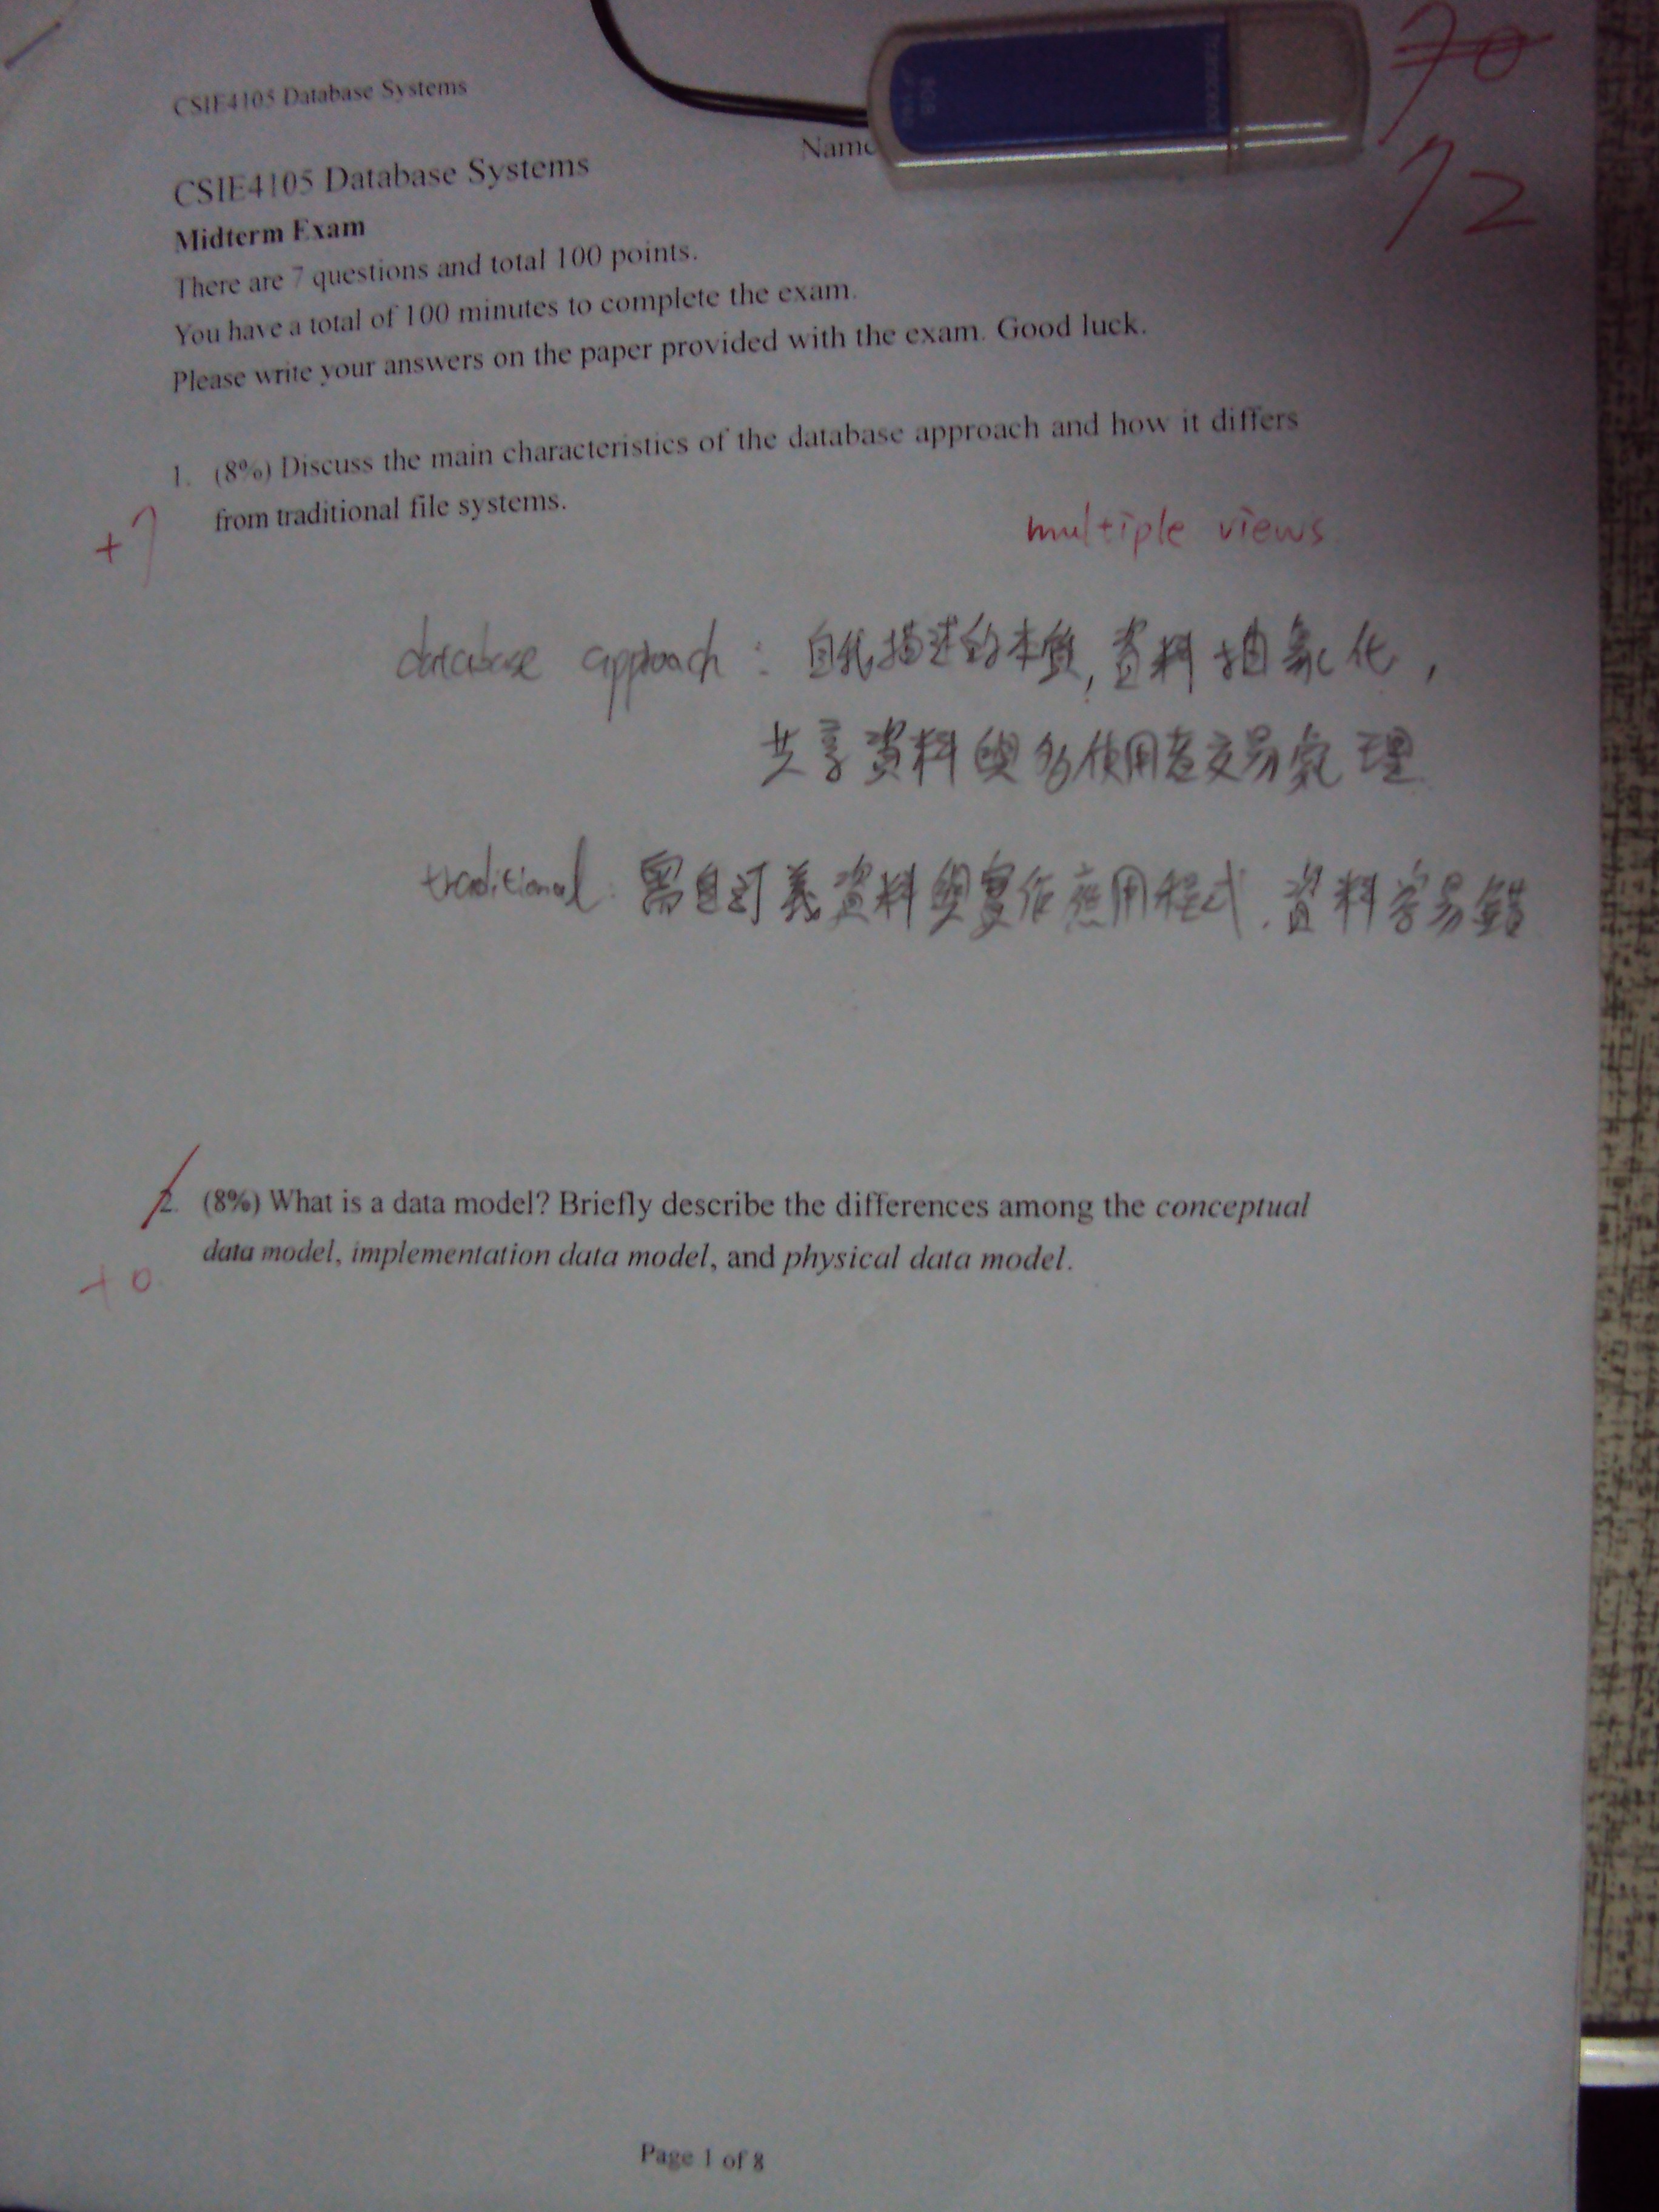 CSIE4105 Database Systems
70
72
Name
CSIE4105 Database Systems
Midterm Exam
There are 7 questions and total 100 points.
You have a total of 100 minutes to complete the exam.
Please write your answers on the paper provided with the exam. Good luck.
1. (8%) Discuss the main characteristics of the database approach and how it differs
from traditional file systems.
+7
multiple views
database approach : 自我描述的本質, 資料抽象化,
共享資料與多使用者交易處理
traditional: 需自訂義資料與實作應用程式, 資料容易錯
2. (8%) What is a data model? Briefly describe the differences among the conceptual
data model, implementation data model, and physical data model.
+0
Page 1 of 8